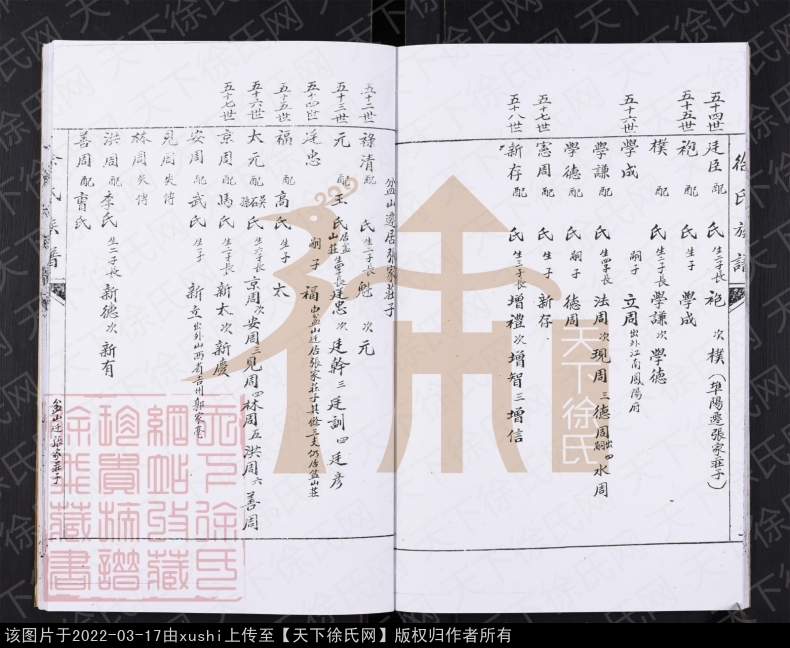 徐氏族譜
五十四世 廷臣 配 氏 生二子長 袍 次 樸（埠陽遷張家莊子）
五十五世 袍 配 氏 生子 學成
樸 配 氏 生二子長 學謙 次 學德
五十六世 學成 嗣子 立周 出外江南鳳陽府
學謙 配 氏 生四子長 法周 次 現周 三 德周 出嗣 四 水周
學德 配 氏 嗣子 德周
五十七世 憲周 配 氏 生子 新存
五十八世 新存 配 氏 生三子長 增禮 次 增智 三 增信
盆山遷居張家莊子
五十二世 祿清 配 氏 生二子長 魁 次 元
五十三世 元 配 王氏 居盆山莊 生四子長 廷忠 次 廷幹 三 廷訓 四 廷彦
五十四世 廷忠 嗣子 福 由盆山迁居張家莊子其餘三支仍居盆山莊
五十五世 福 配 高氏 生子 太
五十六世 太元 配 氏 生六子長 京周 次 安周 三 見周 四 林周 五 洪周 六 善周
五十七世 京周 配 馮氏 生二子長 新太 次 新廣
安周 配 武氏 生子 新立 出外山西省吉州郭家亳
見周 失傳
林周 失傳
洪周 配 李氏 生二子長 新德 次 新有
善周 配 曹氏
盆山迁張家莊子
天下徐氏
天下徐氏網站收藏珍貴族譜徐氏藏書
天下徐氏网
该图片于2022-03-17由xushi上传至【天下徐氏网】版权归作者所有